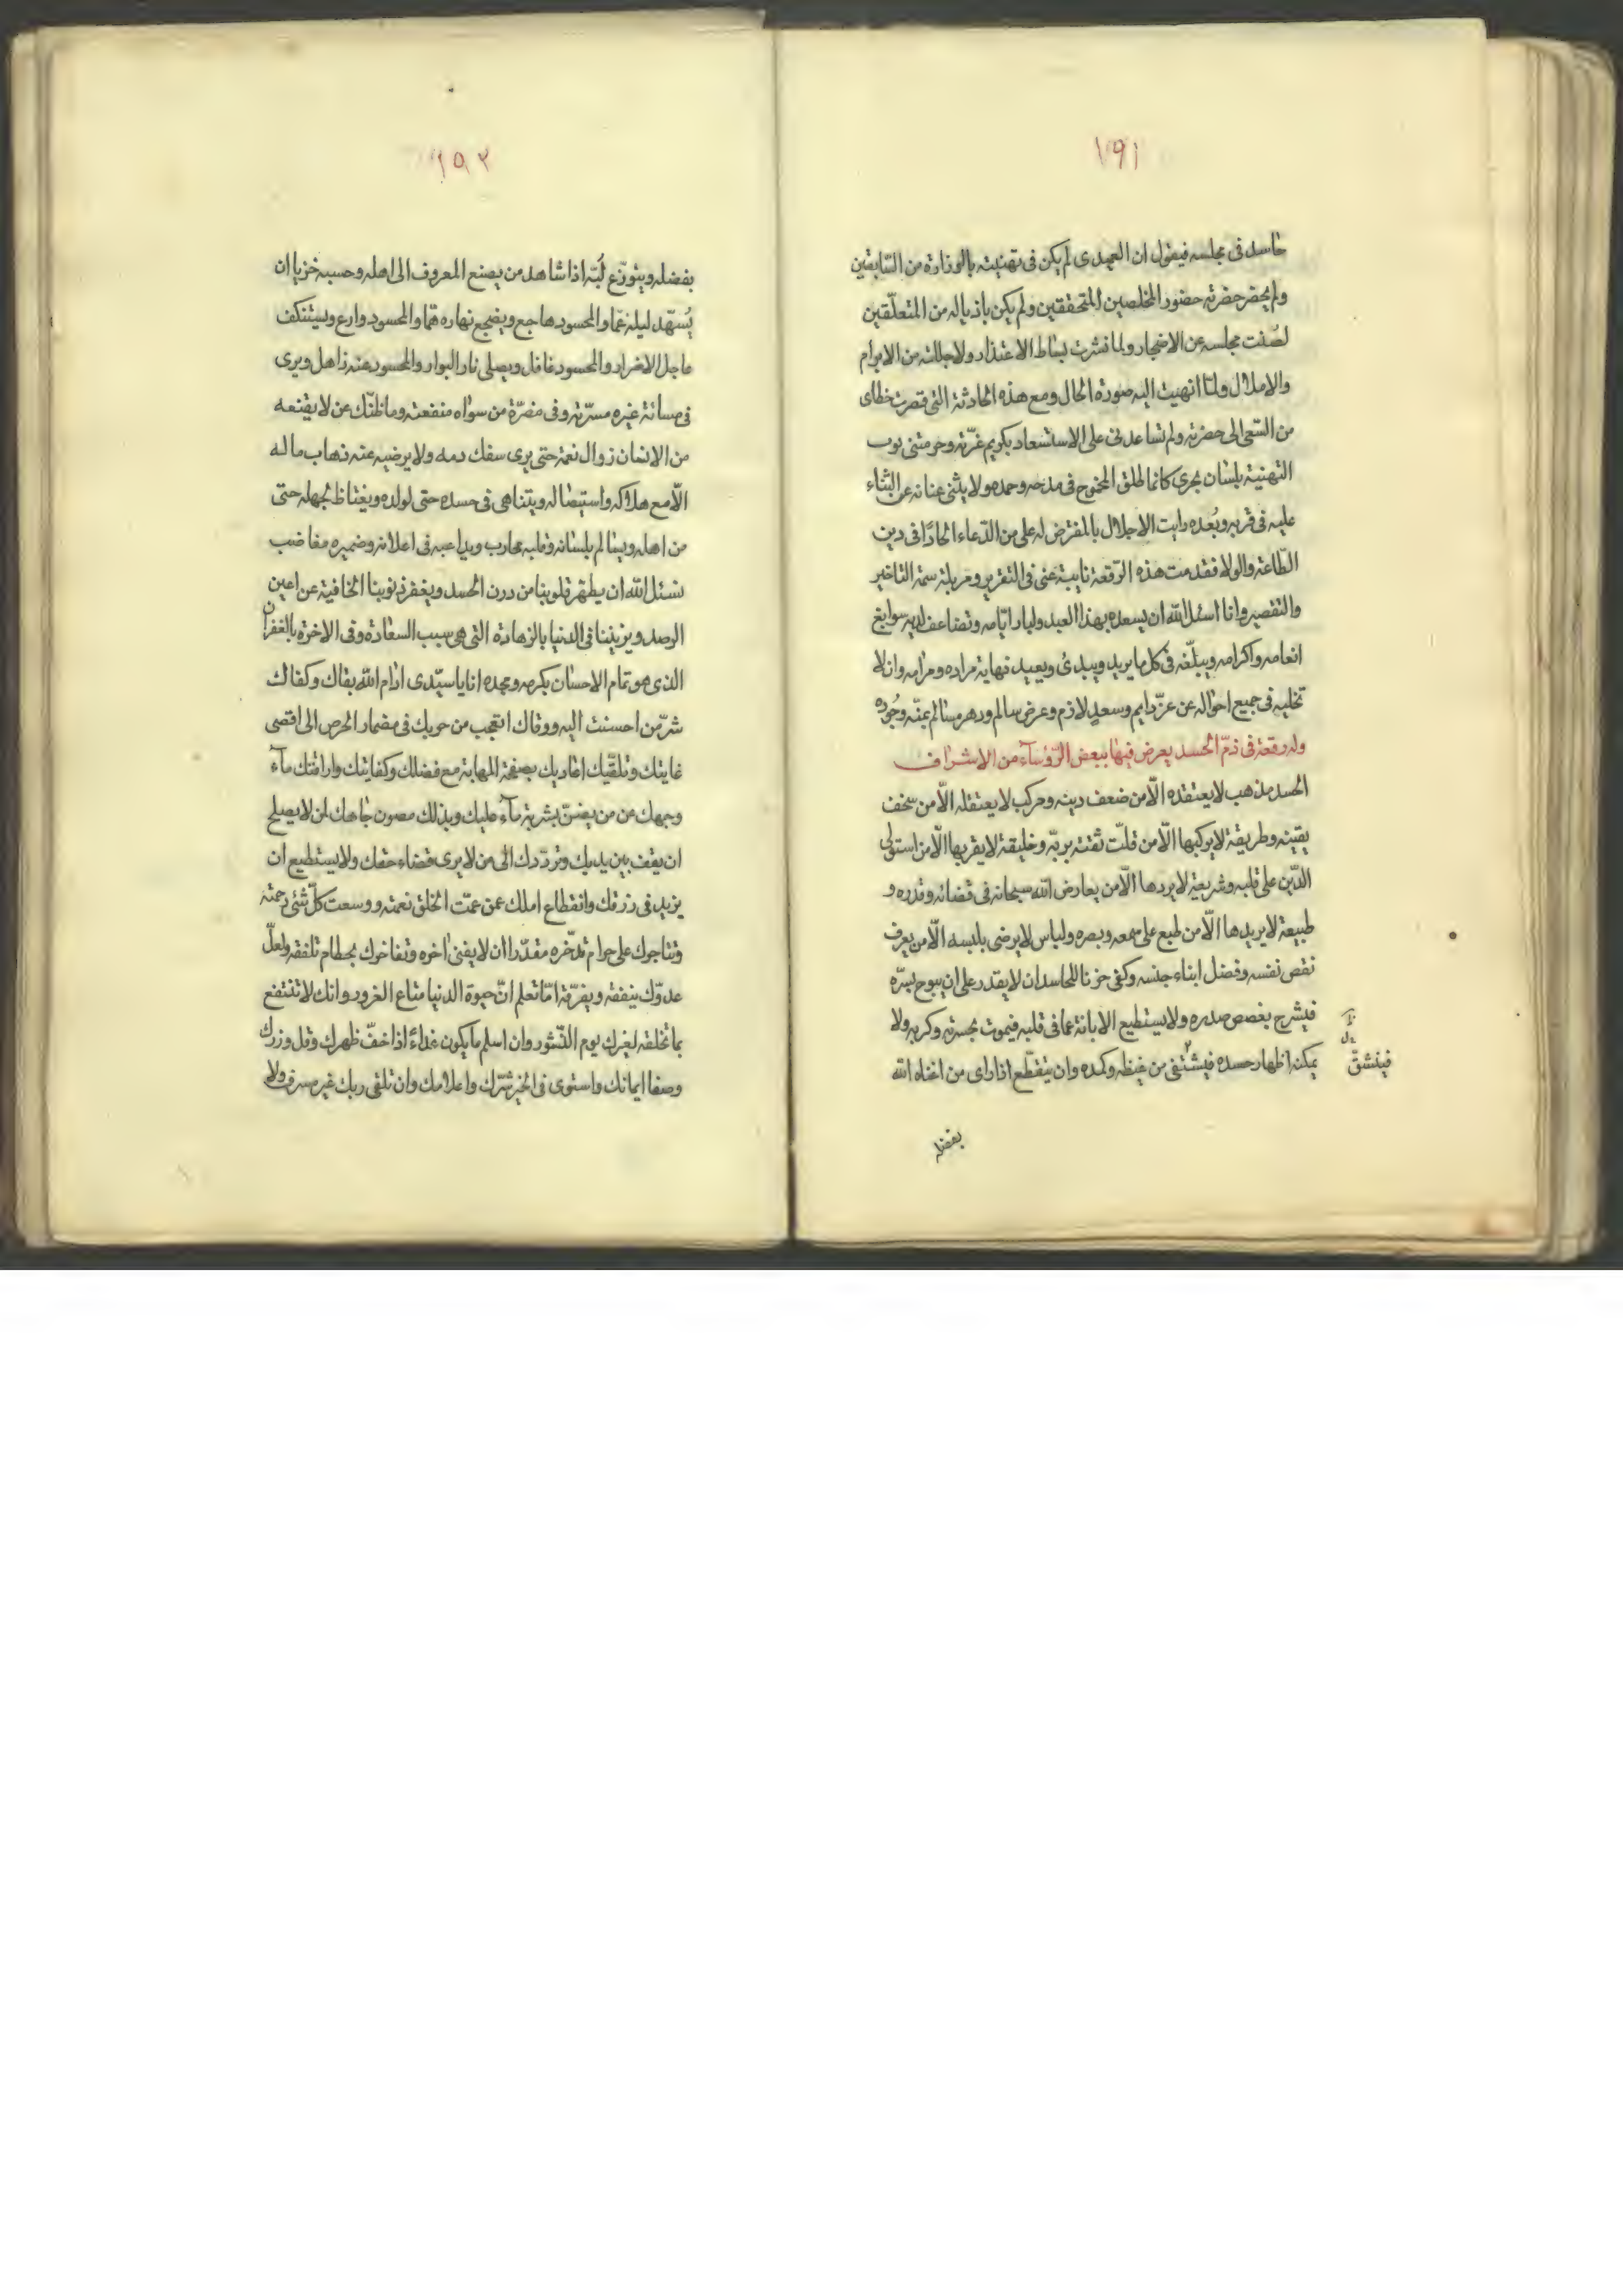 ١٩١
حاسد فى مجلسه فيقول ان العميدى لم يكن فى تهنيته بالوزارة من السّابقين
ولم يحضر حضرته حضور المخلصين المتحققين ولم يكن باذياله من المتعلّقين
لصُنت مجلسه عن الاضجار ولما نشرت بساط الاعتذار ولاجللته من الابرام
والاملال ولمّا انهيت اليه صورة الحال ومع هذه الحادثة التى قصرت خطاى
من السّعى الى حضرته ولم تساعدنى على الاستسعاد بكريم غرّته وحرمتنى نوب
التهنية بلسان يجرى كانما اطلق الجموح فى مدحه وحمده ولا يثنى عنانه عن الثناء
عليه فى قربه وبُعده رايت الاخلال بالمفترض له على من الدّعاء الحادًا فى دين
الطّاعة والولا فقدمت هذه الرّقعة نايبة عنى فى التقرير ومزيلة سمة التاخير
والتقصير وانا اسئل الله ان يسعده بهذا العيد وليار ايّامه وتضاعف لديه سوابغ
انعامه واكرامه ويبلّغه فى كل ما يريد ويبدئ ويعيد نهاية مراده ومرامه وان لا
تخليه فى جميع احواله عن عزّ دايم وسعدٍ لازم وعرض سالم ودهر مسالم بمنّه وجُوده
وله رقعة فى ذمّ الحسد يعرض فيها ببعض الرّؤسآء من الاشراف
الحسد مذهب لا يعتقده الّا من ضعف دينه ومركب لا يعتقله الّا من سخف
يقينه وطريقة لا يركبها الّا من قلّت ثقته بربّه وخليقة لا يقربها الّا من استولى
الدّين على قلبه وشريعة لا يردها الّا من يعارض الله سبحانه فى قضائه وقدره و
طبيعة لا يريدها الّا من طبع على سمعه وبصره ولباس لا يرضى بلبسه الّا من يعرف
نقص نفسه وفضل ابناء جنسه وكفى حزنا للحاسد ان لا يقدر على ان يبوح بسرّه
فيشرح بغصص صدره ولا يستطيع الابانة عما فى قلبه فيموت بحسرته وكربه ولا
يمكنه اظهار حسده فيشتفى من غيظه وكمده وان يتقطّع اذا راى من اغناه الله
فينشقّ
بفضله
١٩٢
بفضله ويتوزّع لُبّه اذا شاهد من يصنع المعروف الى اهله وحسبه خزيا ان
يُسهّد ليله غمّا والمحسود هاجع ويضجع نهاره همّا والمحسود وارع ويستنكف
عاجل الاضرار والمحسود غافل ويصلى نار البوار والمحسود عنه ذاهل ويرى
فى مسائة غيره مسرّته وفى مضرّة من سواه منفعته وما ظنّك عن لا يقنعه
من الانسان زوال نعمة حتى يرى سفك دمه ولا يرضيه عنه ذهاب ماله
الّا مع هلاكه واستيصاله ويتناهى فى حسده حتى لولده ويغتاظ بجهله حتى
من اهله ويسالم بلسانه وقلبه محارب ويداعبه فى اعلانه وضميره مغاضب
نسئل الله ان يطهّر قلوبنا من درن الحسد ويغفر ذنوبنا الخافية عن اعين
الرصد ويزيننا فى الدنيا بالزهادة التى هى سبب السعادة وفى الاخرة بالغفران
الذى هو تمام الاحسان بكرمه ومجده انا يا سيّدى ادام الله بقاك وكفاك
شرّ من احسنت اليه ووقاك اتعجب من حربك فى مضمار الحرص الى اقصى
غايتك وتلقّيك اعاديك بصفحة المهابة مع فضلك وكفايتك واراقتك مآء
وجهك عن من يضنّ بشربة مآء عليك وبذلك مصون جاهك لمن لا يصلح
ان يقف بين يديك وتردّدك الى من لا يرى قضاء حقك ولا يستطيع ان
يزيد فى رزقك وانقطاع املك عمن عمّت الخلق نعمته ووسعت كلّ شئى رحمته
وتتاجوك على حرام تدّخره مقدّرا ان لا يفنى اخره وتفاخرك بحطام تلفقه ولعلّ
عدوّك ينفقه ويفرّقه امّا تعلم انّ حيوة الدنيا متاع الغرور وانك لا تنتفع
بما تخلقه لغيرك يوم النّشور وان اسلم ما يكون غداءً اذا خفّ ظهرك وقل وزرك
وصفا ايمانك واستوى فى الخير سّرك واعلامك وان تلقى ربك غير مسرف ولا